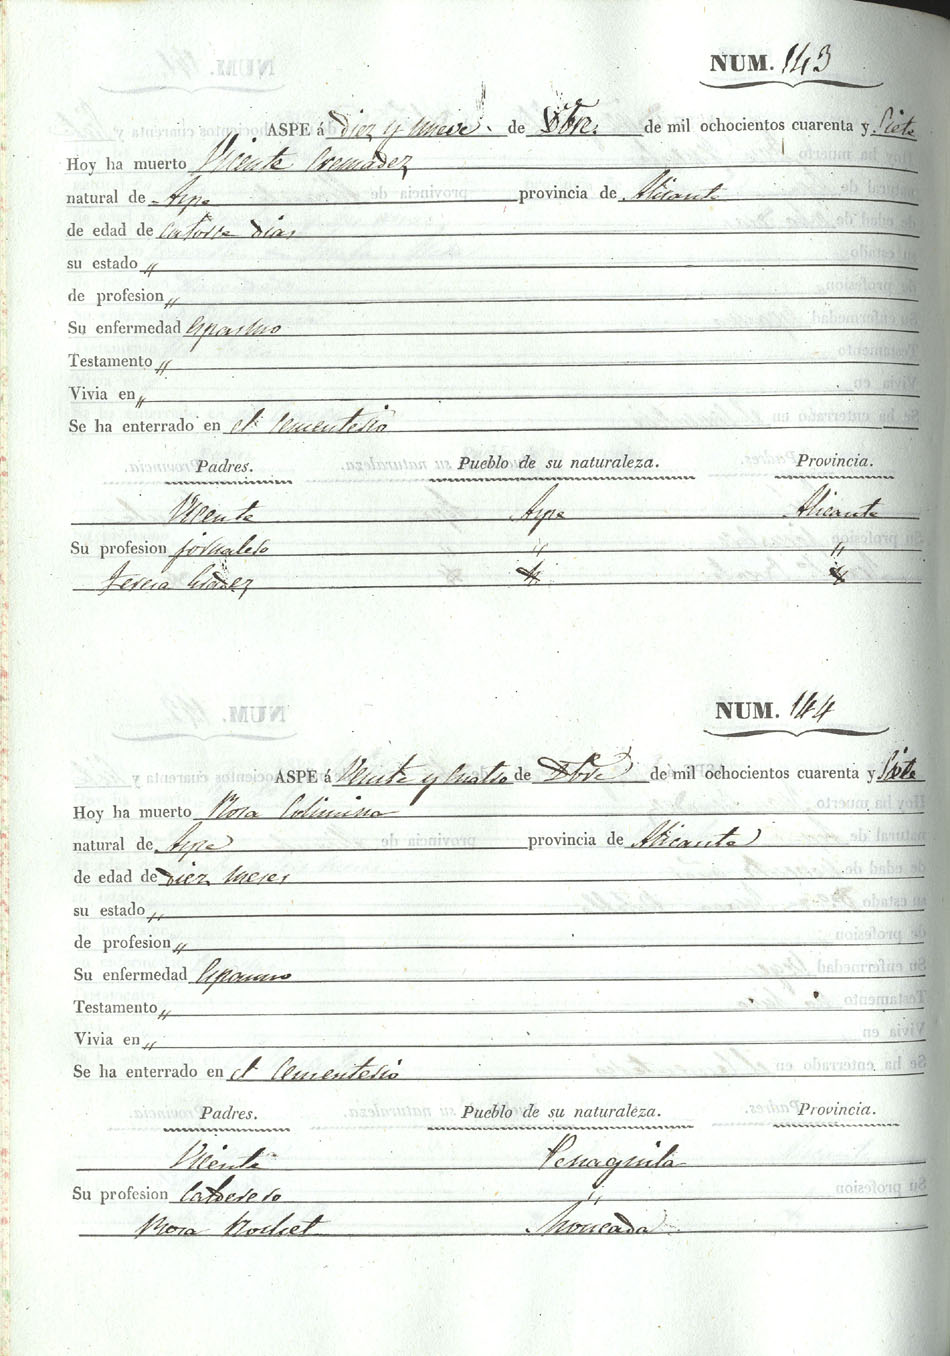 NUM. 143
ASPE á diez y nueve de Dbre. de mil ochocientos cuarenta y Siete
Hoy ha muerto Vicente Cremadez
natural de Aspe provincia de Alicante
de edad de catorse dias
su estado „
de profesion „
Su enfermedad Espasmo
Testamento „
Vivia en „
Se ha enterrado en el Cementerio
Padres. Pueblo de su naturaleza. Provincia.
Vicente Aspe Alicante
Su profesion jornalero „ „
Teresa
NUM. 144
ASPE á Veinte y cuatro de Dbre de mil ochocientos cuarenta y Siete
Hoy ha muerto Rosa Colimina
natural de Aspe provincia de Alicante
de edad de diez meses
su estado „
de profesion „
Su enfermedad Espasmo
Testamento „
Vivia en „
Se ha enterrado en el Cementerio
Padres. Pueblo de su naturaleza. Provincia.
Vicente Penaguila
Su profesion Calderero „
Rosa Moncada